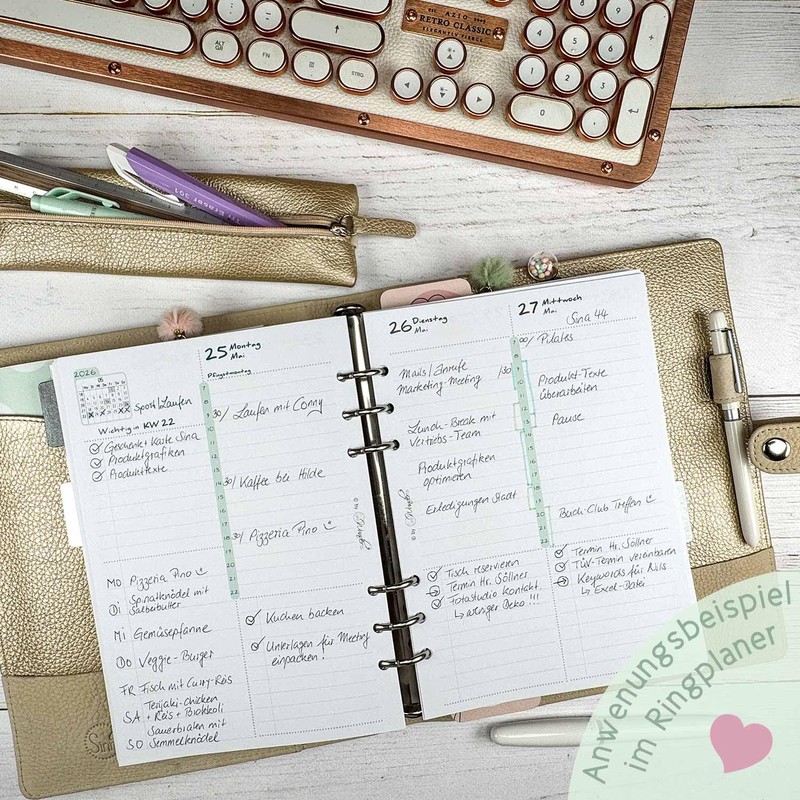 EST. 2009
AZIO
RETRO CLASSIC
ELEGANTLY FIERCE
ALT
GR
FN
STRG
1
2
3
4
5
6
8
9
0
+
2026
05
Sport/Laufen
Wichtig in KW 22
Geschenk + Karte Sina
Produktgrafiken
Produkttexte
MO Pizzeria Pino
DI Spinatknödel mit
Salbeibutter
MI Gemüsepfanne
DO Veggie-Burger
FR Fisch mit Curry-Reis
SA Terijaki-chicken
+ Reis + Brokkoli
SO Sauerbraten mit
Semmelknödel
25 Montag
Mai
Pfingstmontag
30/ Laufen mit Conny
30/ Kaffee bei Hilde
30/ Pizzeria Pino
Kuchen backen
Unterlagen für Meeting
einpacken!
26 Dienstag
Mai
Mails/Anrufe
Marketing-Meeting /30
Lunch-Break mit
Vertriebs-Team
Produktgrafiken
optimieren
Erledigungen Stadt
Tisch reservieren
Termin Hr. Söllner
Fotostudio Kontakt
↳ weniger Deko!!!
27 Mittwoch
Mai
Sina 44
00/ Pilates
Produkt-Texte
überarbeiten
Pause
Buch-Club Treffen
Termin Hr. Söllner
TÜV-Termin vereinbaren
Keywords für Nils
↳ Excel-Datei
Anwenungsbeispiel
im Ringplaner